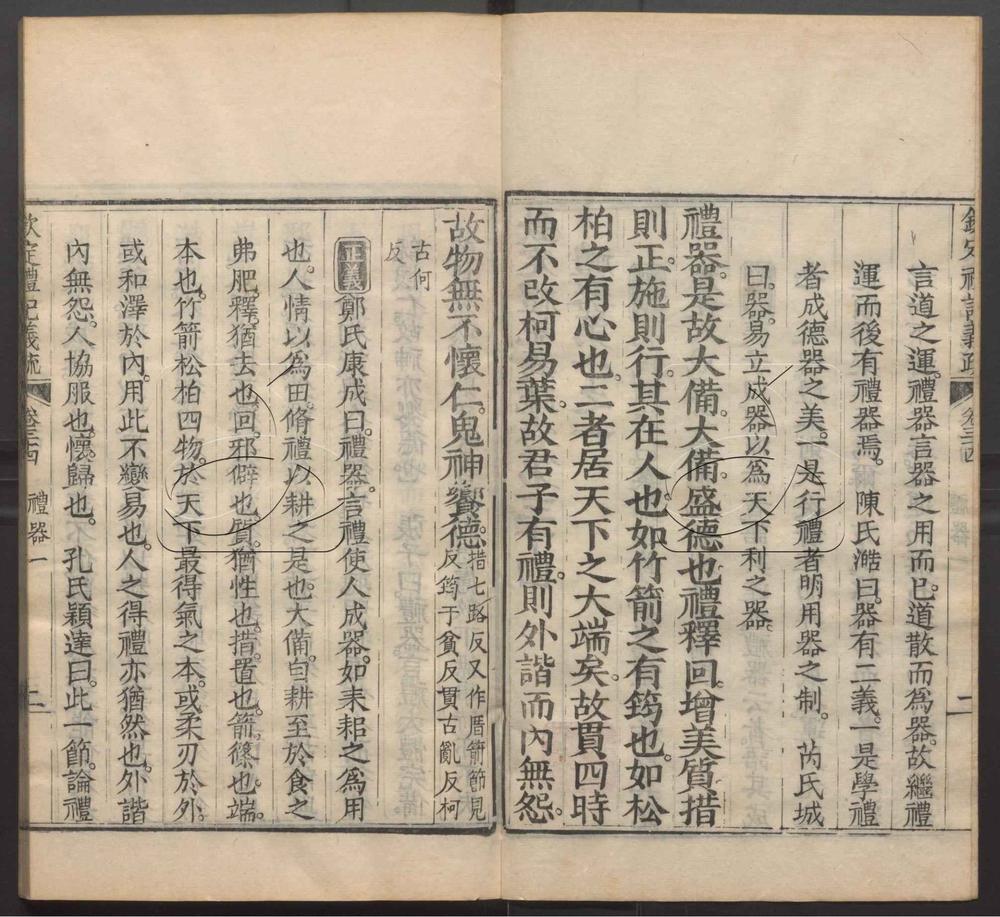 欽定禮記義疏 卷三十四 禮器一 二
言道之運。禮器言器之用而已。道散而為器。故繼禮
運而後有禮器焉。 陳氏澔曰。器有二義。一是學禮
者成德器之美。一是行禮者明用器之制。 芮氏城
曰。器。易立成器以為天下利之器。
禮器。是故大備。大備。盛德也。禮釋回。增美質。措
則正。施則行。其在人也。如竹箭之有筠也。如松
柏之有心也。二者居天下之大端矣。故貫四時
而不改柯易葉。故君子有禮。則外諧而內無怨。
故物無不懷仁。鬼神饗德。措七路反又作厝箭節見
反筠于貧反貫古亂反柯
古何
反
正義 鄭氏康成曰。禮器。言禮使人成器。如耒耜之為用
也。人情以為田。脩禮以耕之是也。大備。自耕至於食之
弗肥。釋。猶去也。回。邪僻也。質。猶性也。措。置也。箭。篠也。端。
本也。竹箭松柏四物。於天下最得氣之本。或柔刃於外。
或和澤於內。用此不變易也。人之得禮亦猶然也。外諧
內無怨。人協服也。懷。歸也。 孔氏穎達曰。此一節。論禮
欽定禮記義疏 卷三十四 禮器一 二